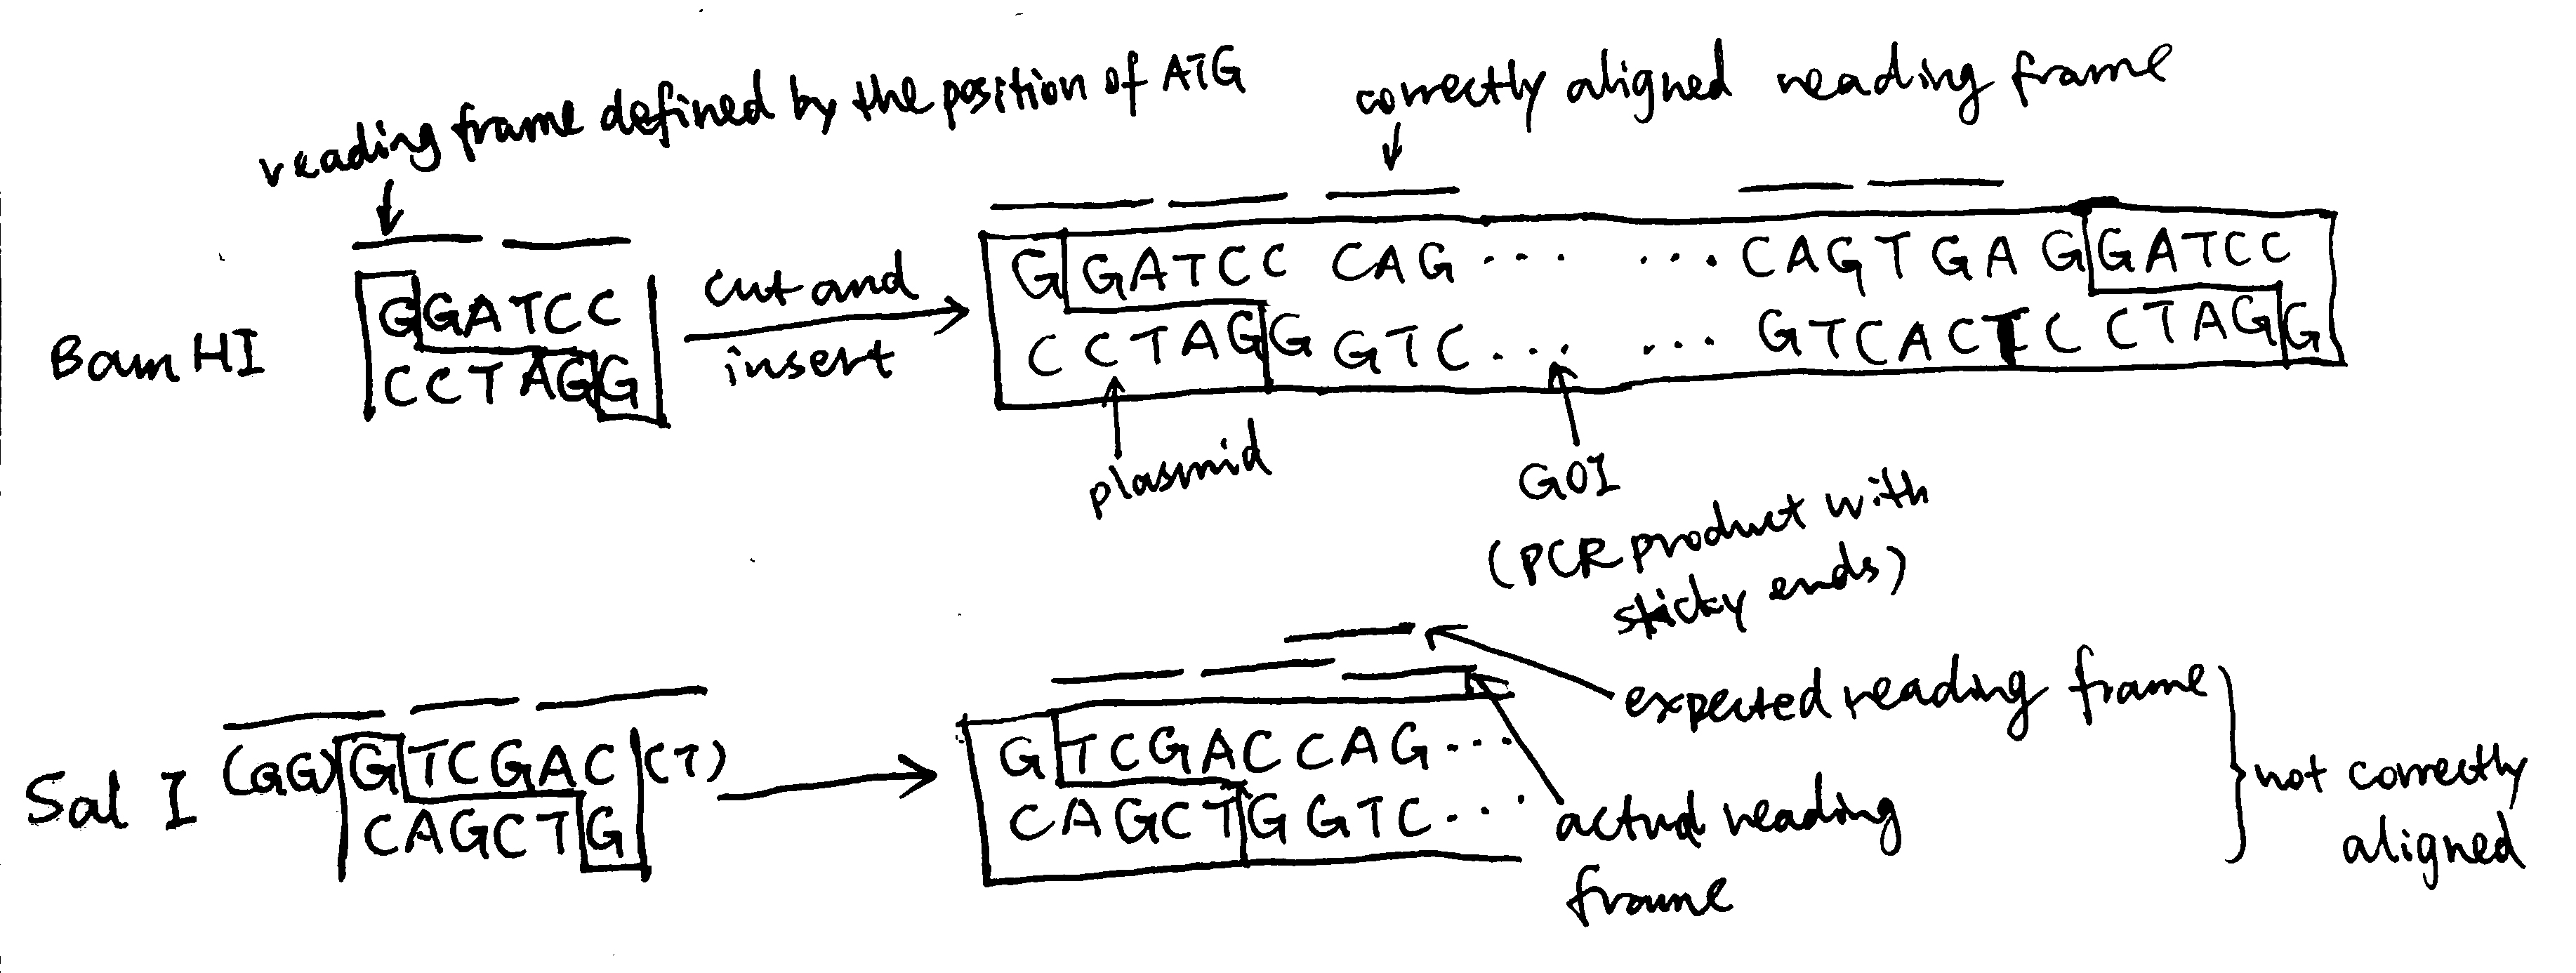 reading frame defined by the position of ATG
correctly aligned reading frame
BamHI
GGATCC
CCTAGG
cut and
insert
GGATCC CAG... ...CAGTGAGGATCC
CCTAGG GTC... ...GTCACTCCTAGG
plasmid
GOI
(PCR product with
sticky ends)
Sal I
(GG)GTCGAC(CT)
CAGCTG
GTCGACCAG...
CAGCTGGTC...
expected reading frame
actual reading
frame
not correctly
aligned